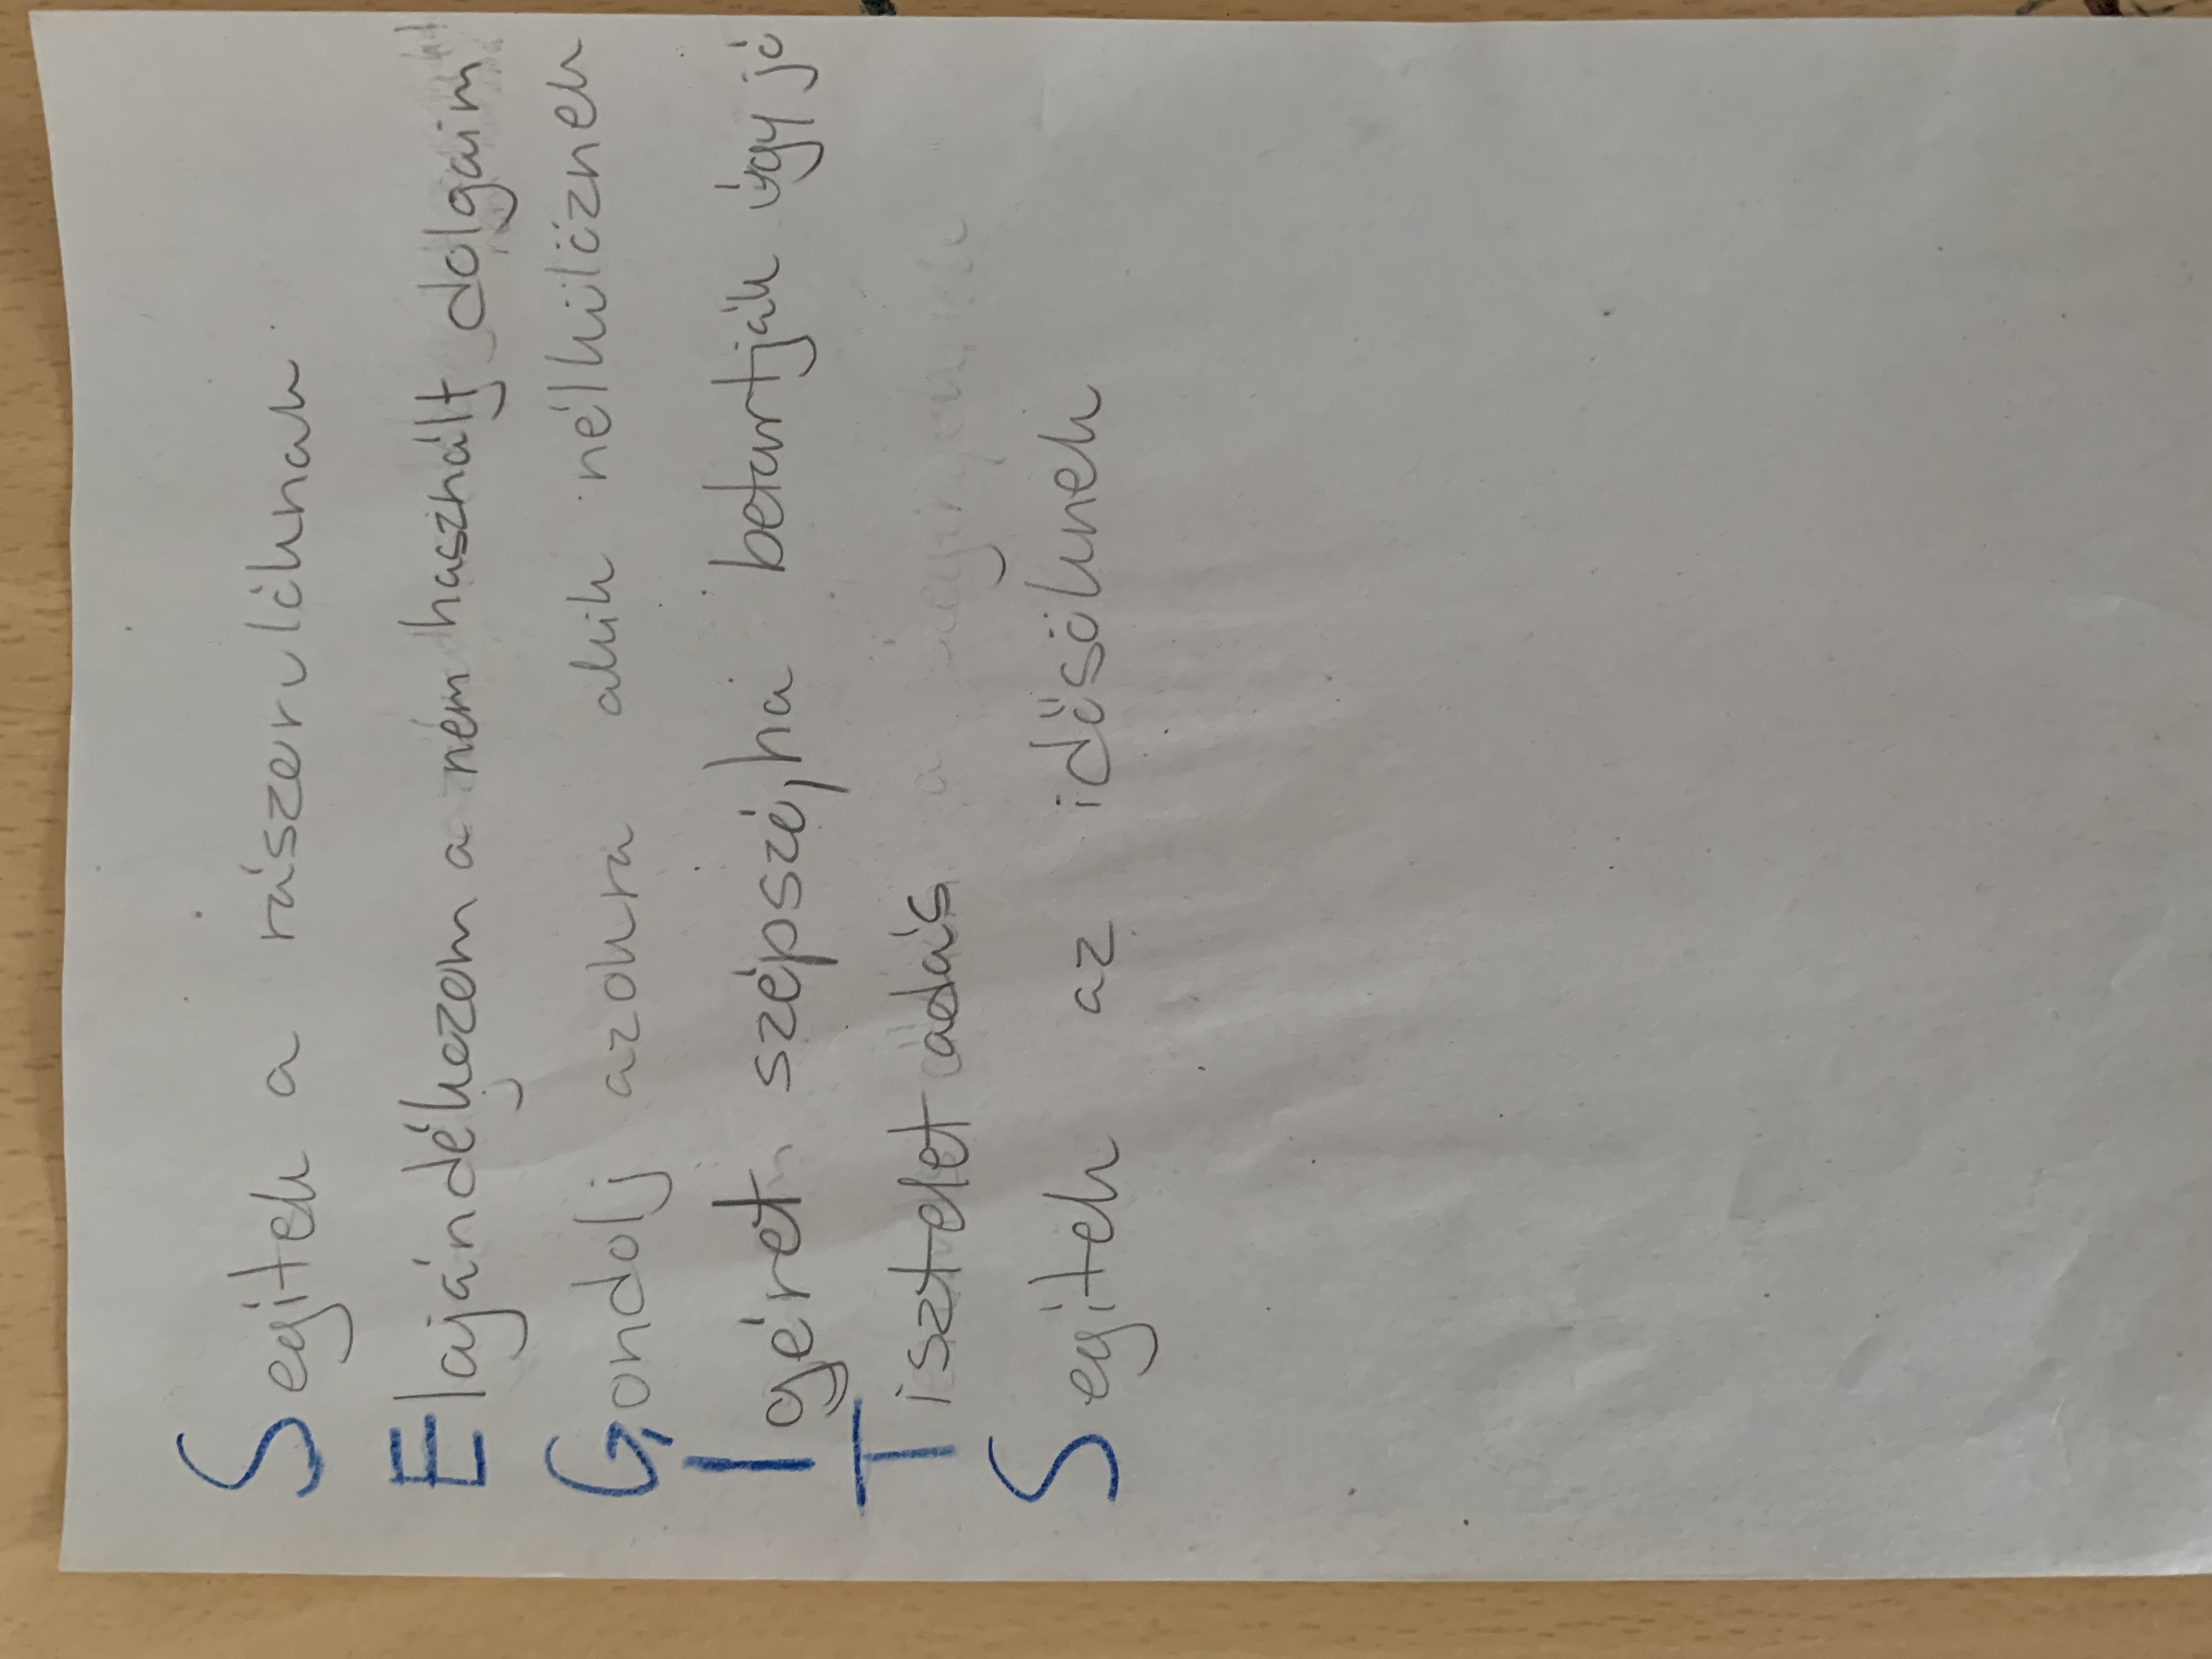 Segitek a rászorulóknak
Elajándékozom a nem használt dolgaim
Gondolj azokra akik nélkülöznek
Igéret szépszé, ha betartják úgy jó
Tisztelet adás
Segitek az idősöknek